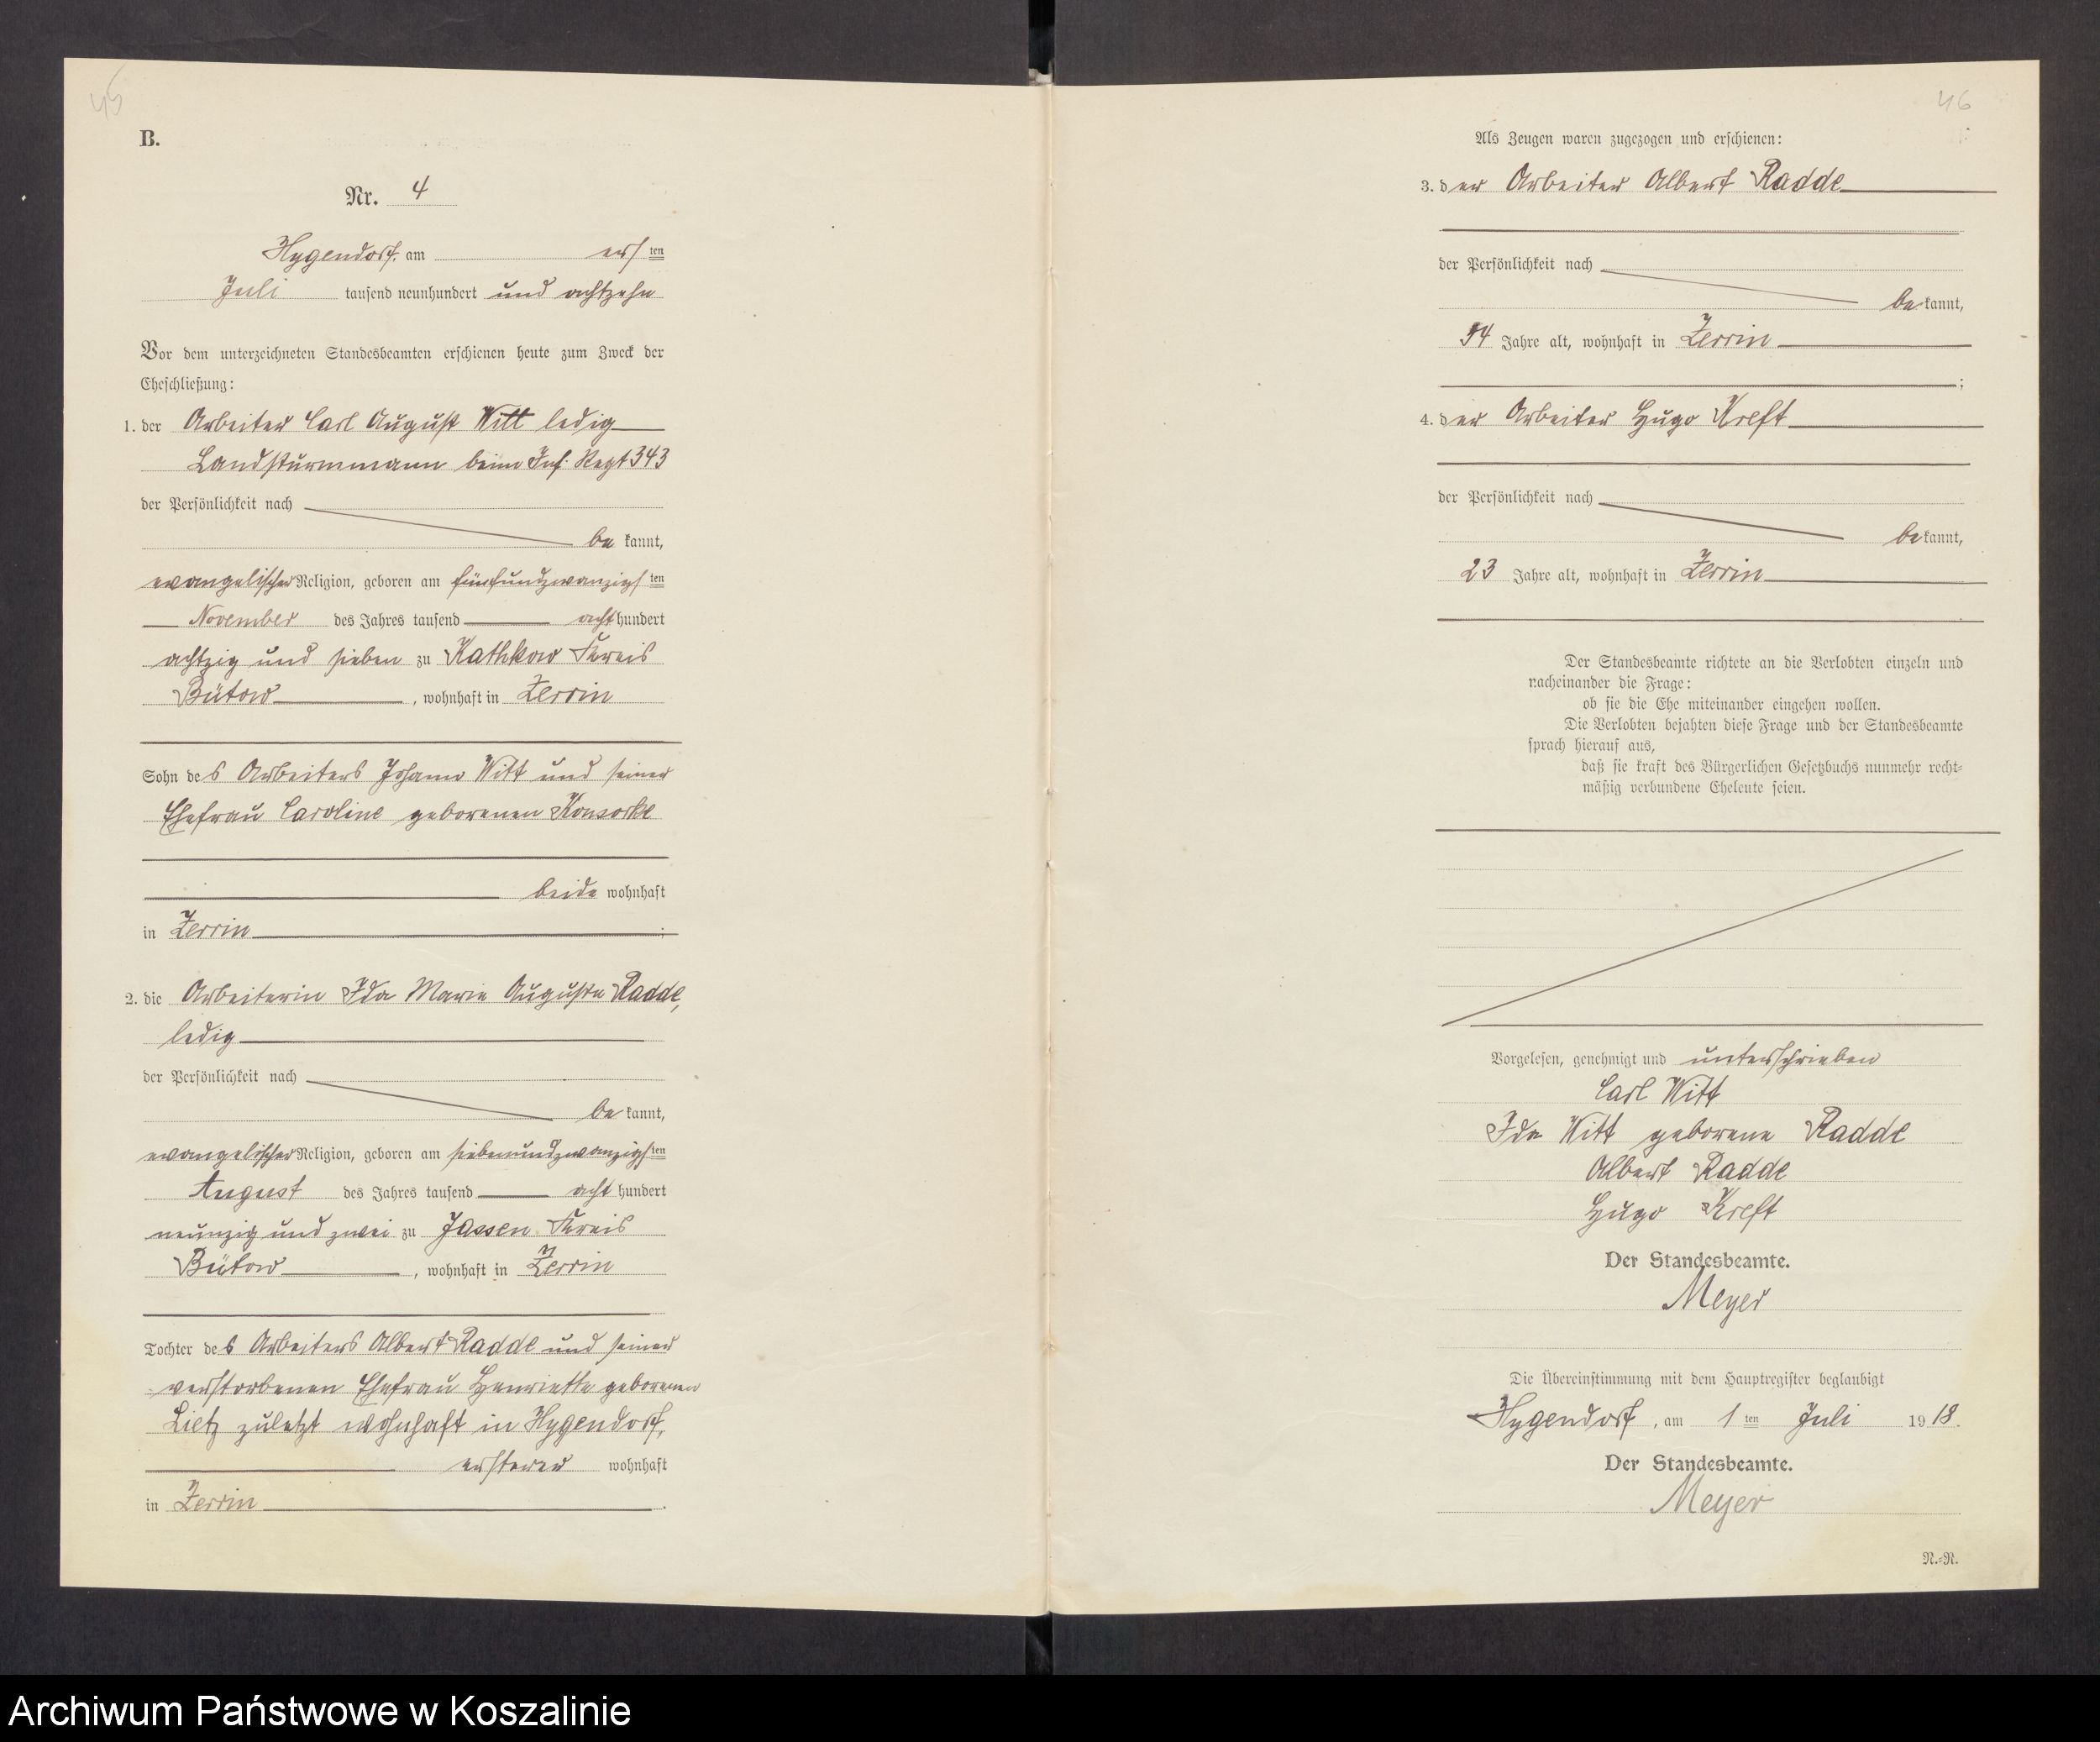 45
B.
Nr. 4
Hygendorf, am ersten
Juli tausend neunhundert und achtzehn
Vor dem unterzeichneten Standesbeamten erschienen heute zum Zweck der
Eheschließung:
1. der Arbeiter Carl August Witt ledig
Landsturmmann beim Inf. Regt 343
der Persönlichkeit nach
be kannt,
evangelischer Religion, geboren am fünfundzwanzigsten
November des Jahres tausend acht hundert
achtzig und sieben zu Kathkow Kreis
Bütow, wohnhaft in Zerrin
Sohn des Arbeiters Johann Witt und seiner
Ehefrau Caroline geborenen
beide wohnhaft
in Zerrin;
2. die Arbeiterin Ida Marie Auguste Radde,
ledig
der Persönlichkeit nach
be kannt,
evangelischer Religion, geboren am siebenundzwanzigsten
August des Jahres tausend acht hundert
neunzig und zwei zu Jassen Kreis
Bütow, wohnhaft in Zerrin
Tochter des Arbeiters Albert Radde und seiner
verstorbenen Ehefrau Henriette geborenen
Lietz zuletzt wohnhaft in Hygendorf,
ersterer wohnhaft
in Zerrin.
46
Als Zeugen waren zugezogen und erschienen:
3. der Arbeiter Albert Radde
der Persönlichkeit nach
be kannt,
54 Jahre alt, wohnhaft in Zerrin
;
4. der Arbeiter Hugo Kreft
der Persönlichkeit nach
be kannt,
23 Jahre alt, wohnhaft in Zerrin
Der Standesbeamte richtete an die Verlobten einzeln und
nacheinander die Frage:
ob sie die Ehe miteinander eingehen wollen.
Die Verlobten bejahten diese Frage und der Standesbeamte
sprach hierauf aus,
daß sie kraft des Bürgerlichen Gesetzbuchs nunmehr recht-
mäßig verbundene Eheleute seien.
Vorgelesen, genehmigt und unterschrieben
Carl Witt
Ida Witt geborene Radde
Albert Radde
Hugo Kreft
Der Standesbeamte.
Meyer
Die Übereinstimmung mit dem Hauptregister beglaubigt
Hygendorf, am 1 ten Juli 1918.
Der Standesbeamte.
Meyer
N.-R.
Archiwum Państwowe w Koszalinie